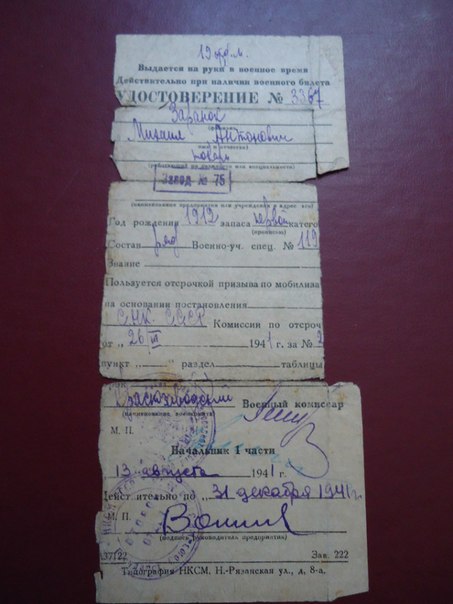 19
Выдается на руки в военное время
Действительно при наличии военного билета
УДОСТОВЕРЕНИЕ № 3367
Заранок
Михаил Антонович
имя и отчество)
токарь
Завод № 75
(наименование предприятия или учреждения и адрес его)
Год рождения 1912 запаса первой катего
(прописью)
Состав ряд Военно-уч. спец. № 119
Звание
Пользуется отсрочкой призыва по мобилиза
на основании постановления
СНК СССР Комиссии по отсроч
от „26/III 1941 г. за № 2
пункт „ “ раздел таблицы
Военный комиссар
(наименование военкомата)
М. П.
Начальник 1 части
13 августа 1941 г.
Действительно по „31 декабря 1941 г.
М. П.
(подпись руководителя предприятия)
37122 Зак. 222
Типография НКСМ, Н.-Рязанская ул., д. 8-а.